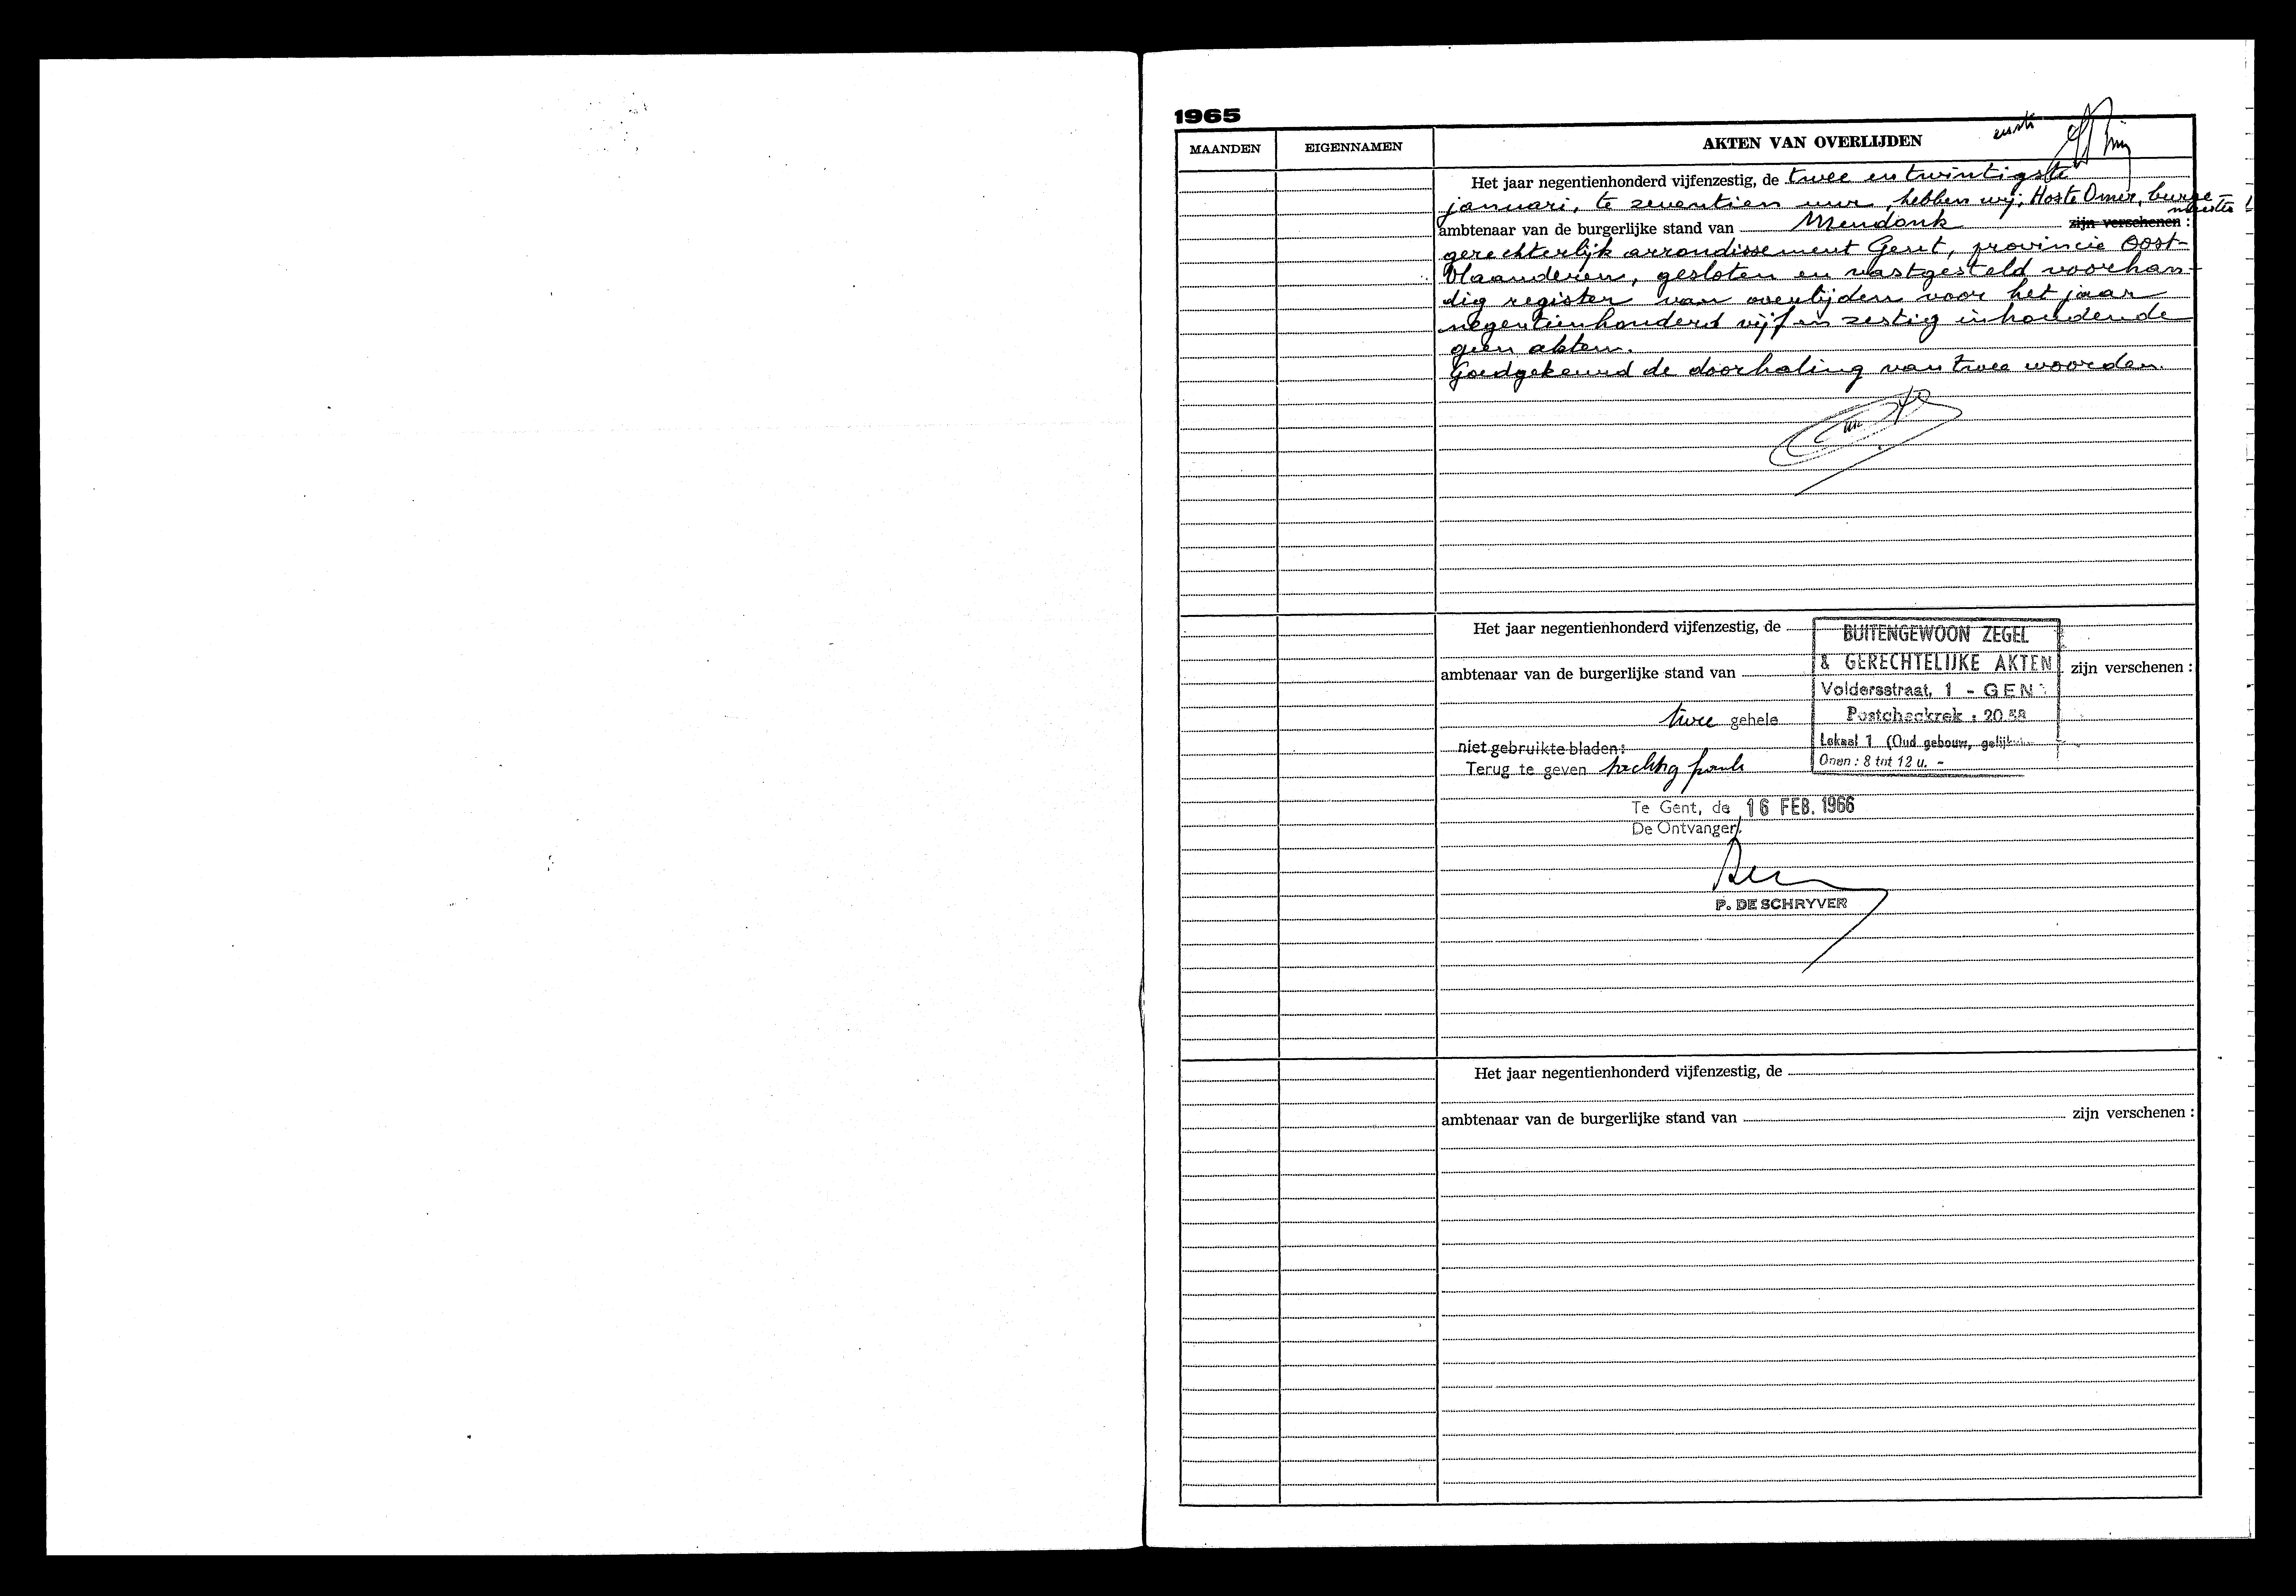 1965
MAANDEN EIGENNAMEN AKTEN VAN OVERLIJDEN eerste
Het jaar negentienhonderd vijfenzestig, de twee en twintigste
januari, te zeventien uur, hebben wij, Hoste Omer, burge-
meester
ambtenaar van de burgerlijke stand van Mendonk zijn verschenen :
gerechterlijk arrondissement Gent, provincie Oost-
Vlaanderen, gesloten en vastgesteld voorhan-
dig register van overlijden voor het jaar
negentienhonderd vijf en zestig inhoudende
geen akten.
Goedgekeurd de doorhaling van twee woorden.
Het jaar negentienhonderd vijfenzestig, de
BUITENGEWOON ZEGEL
& GERECHTELIJKE AKTEN
ambtenaar van de burgerlijke stand van zijn verschenen :
Voldersstraat, 1 - GEN
twee gehele
Postcheckrek : 20.58
niet gebruikte bladen :
Lokaal 1 (Oud gebouw,
Terug te geven
Open : 8 tot 12 u. -
Te Gent, de 16 FEB. 1966
De Ontvanger,
P. DE SCHRYVER
Het jaar negentienhonderd vijfenzestig, de
ambtenaar van de burgerlijke stand van zijn verschenen :